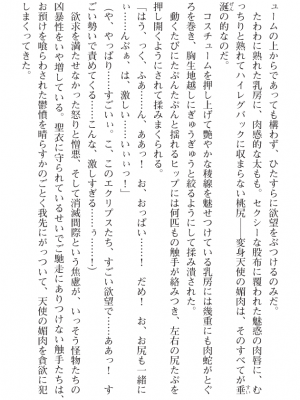 ュームの上からであっても構わず、ひたすらに欲望をぶつけるのみだ。
　たわわに熟れた乳房に、肉感的な太もも。セクシーな股布に覆われた魅惑の肉唇に、む
っちりと熟れてハイレグバックに収まらない桃尻――変身天使の媚肉は、そのすべてが垂
涎の的なのだ。
　コスチュームを押し上げて艶やかな稜線を魅せつけている乳房には幾重にも肉蛇がとぐ
ろを巻き、胸生地越しにぎゅうぎゅうと絞るようにして揉み潰された。
　動くたびにぷたんぷたんと揺れるヒップには何匹もの触手が絡みつき、左右の尻たぶを
押し開くようにされて揉みまくられる。
「はうっ、くっ、ふぁ……んっ、あぁっ！　お、おっぱい……っ！　だめっ！　お、お尻も一緒に
ぃ……んぷぁっ、は、激しい……いぃいっ！」
（や、やっぱり……すごいぃっ、こ、このエクリプスたち、すごい欲望で……ああっ！　す
ごい勢いで責めてくる……こんな、激しすぎるぅ……っ！）
　欲求を満たせなかった怒りと憎悪、そして消滅間際という焦慮が、いっそう怪物たちの
凶暴性をいや増している。聖衣に守られているせいでご馳走にありつけない触手たちは、
お預けを喰らわされた鬱憤を晴らすかのごとく我先にがっついて、天使の媚肉を貪欲に犯
しまくってきた。